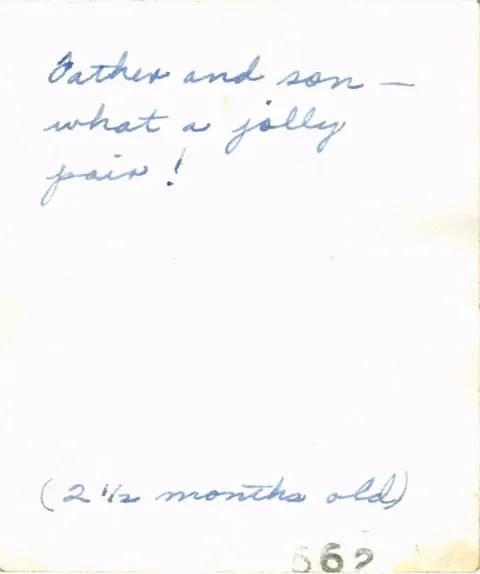 Father and son —
what a jolly
pair!
(2 1/2 months old)
562